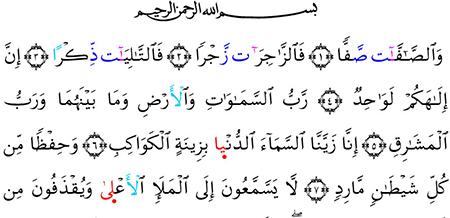 بسم الله الرحمن الرحيم
وَالصَّٰٓفَّٰتِ صَفًّا ﴿١﴾ فَالزَّٰجِرَٰتِ زَجْرًا ﴿٢﴾ فَالتَّٰلِيَٰتِ ذِكْرًا ﴿٣﴾ إِنَّ
إِلَٰهَكُمْ لَوَٰحِدٌ ﴿٤﴾ رَّبُّ السَّمَٰوَٰتِ وَالْأَرْضِ وَمَا بَيْنَهُمَا وَرَبُّ
الْمَشَٰرِقِ ﴿٥﴾ إِنَّا زَيَّنَّا السَّمَآءَ الدُّنْيَا بِزِينَةٍ الْكَوَاكِبِ ﴿٦﴾ وَحِفْظًا مِّن
كُلِّ شَيْطَٰنٍ مَّارِدٍ ﴿٧﴾ لَّا يَسَّمَّعُونَ إِلَى الْمَلَإِ الْأَعْلَىٰ وَيُقْذَفُونَ مِن